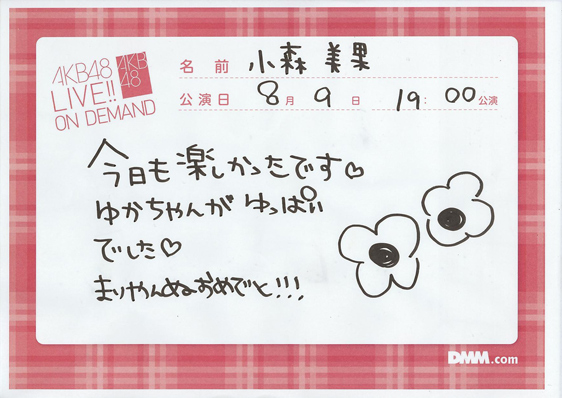 AKB48
LIVE!!
ON DEMAND
AKB
48
名前 小森 美果
公演日 8月9日 19:00公演
今日も楽しかったです♡
ゆかちゃんがゆっぱぃ
でした♡
まりやんぬおめでと!!!
DMM.com